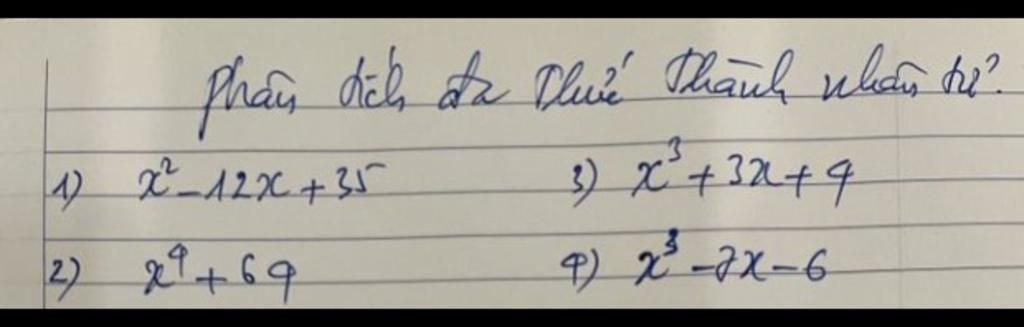 Phân tích đa thức thành nhân tử?
1) x² - 12x + 35 3) x³ + 3x + 4
2) x⁴ + 64 4) x³ - 7x - 6